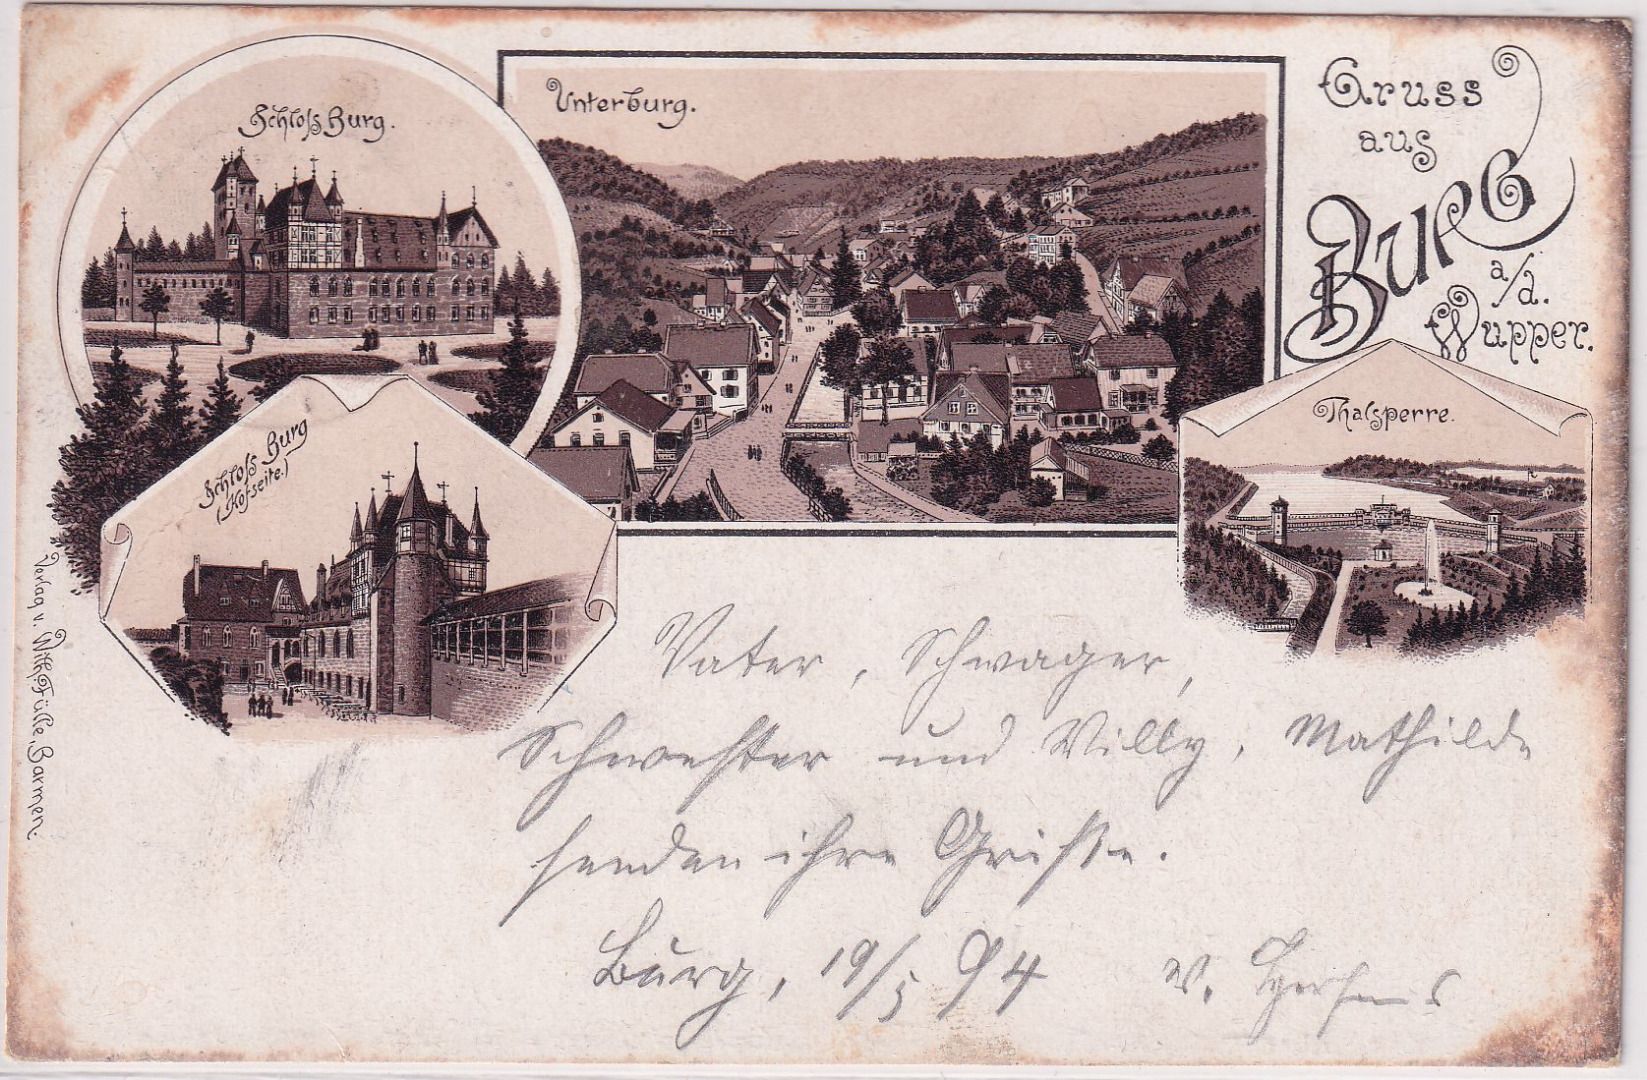 Schloss Burg.
Unterburg.
Gruss
aus
Burg
a/d.
Wupper.
Thalsperre.
Schloss Burg
(Hofseite.)
Verlag v. Wilh. Fülle, Barmen.
Vater, Schwager,
Schwester und Willy, Mathilde
senden ihre Grüße.
Burg, 19/5 94 W.